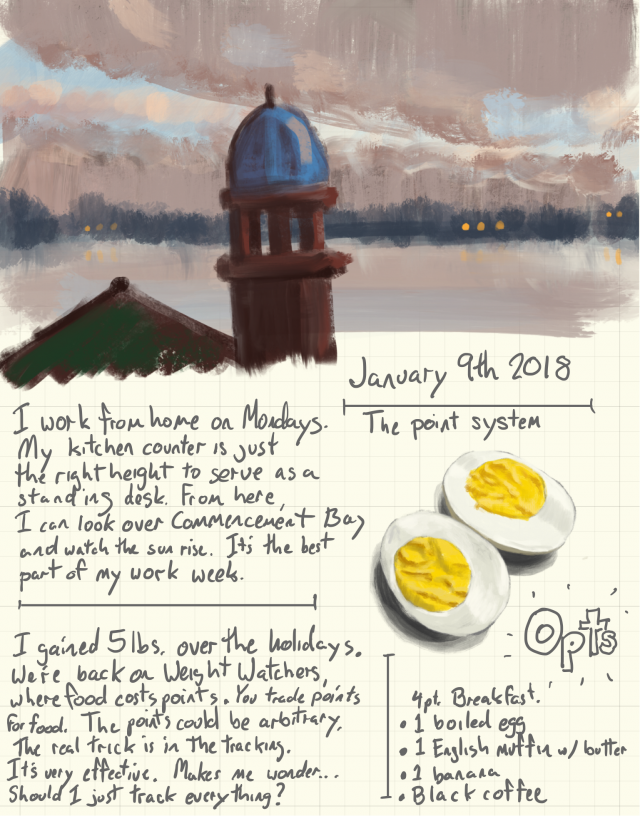 January 9th 2018
The point system
I work from home on Mondays.
My kitchen counter is just
the right height to serve as a
standing desk. From here,
I can look over Commencement Bay
and watch the sun rise. It's the best
part of my work week.
I gained 5 lbs. over the holidays.
We're back on Weight Watchers,
where food costs points. You trade points
for food. The points could be arbitrary.
The real trick is in the tracking.
It's very effective. Makes me wonder...
Should I just track everything?
0pts
4pt. Breakfast.
• 1 boiled egg
• 1 English muffin w/ butter
• 1 banana
• Black coffee